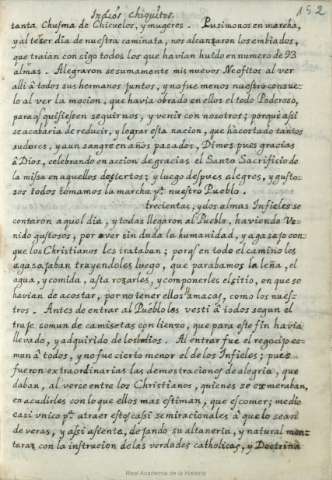 Indios chiquitos. 152
tanta Chusma de Chicuelos, y mugeres. Pusimonos en marcha,
y al tercer dia de nuestra caminata, nos alcanzaron los embiados,
que traian consigo todos los que havian huido en numero de 93
almas. Alegraronse sumamente mis nuevos Neofitos al ver
alli à todos sus hermanos juntos, y no fue menos nuestro consue-
lo al ver la mocion, que havia obrado en ellos el todo Poderoso,
para q̃ quisiesen seguirnos, y venir con nosotros; porque asi
se acabaria de reducir, y lograr esta nacion, que ha costado tantos
sudores, y aun sangre en años pasados. Dimos pues gracias
à Dios, celebrando en accion de gracias el Santo Sacrificio de
la misa en aquellos desiertos; y luego despues alegres, y gusto-
sos todos tomamos la marcha pª nuestro Pueblo.
trecientas, y dos almas Infieles se
contaron aquel dia, y todas llegaron al Pueblo, haviendo Ve-
nido gustosos, por ver sin duda la humanidad, y agasajo con
que los Christianos les trataban; porq̃ en todo el camino les
agasajaban trayendoles luego, que parabamos la leña, el
agua, y comida, asta rozarles, y componerles el sitio, en que se
havian de acostar, por no tener ellos amacas, como los nues-
tros. Antes de entrar al Pueblo les vesti à todos segun el
traje comun de camisetas con lienzo, que para este fin havia
llevado, y adquirido de los mios. Al entrar fue el regocijo co-
mun à todos, y no fue cierto menor el de los Infieles; pues
fueron extraordinarias las demostraciones de alegria, que
daban, al verse entre los Christianos, quienes se esmeraban,
en acudirles con lo que ellos mas estiman, que es comer; medio
casi unico pª atraer estos casi semiracionales à que lo sean
de veras, y asi asienta, dejando su altaneria, y natural mon-
taraz con la instruccion de las verdades catholicas, y Doctrina
Real Academia de la Historia